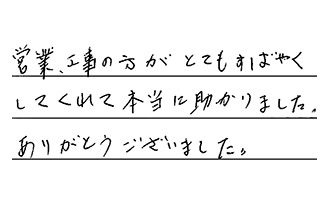 営業、工事の方がとてもすばやく
してくれて本当に助かりました。
ありがとうございました。